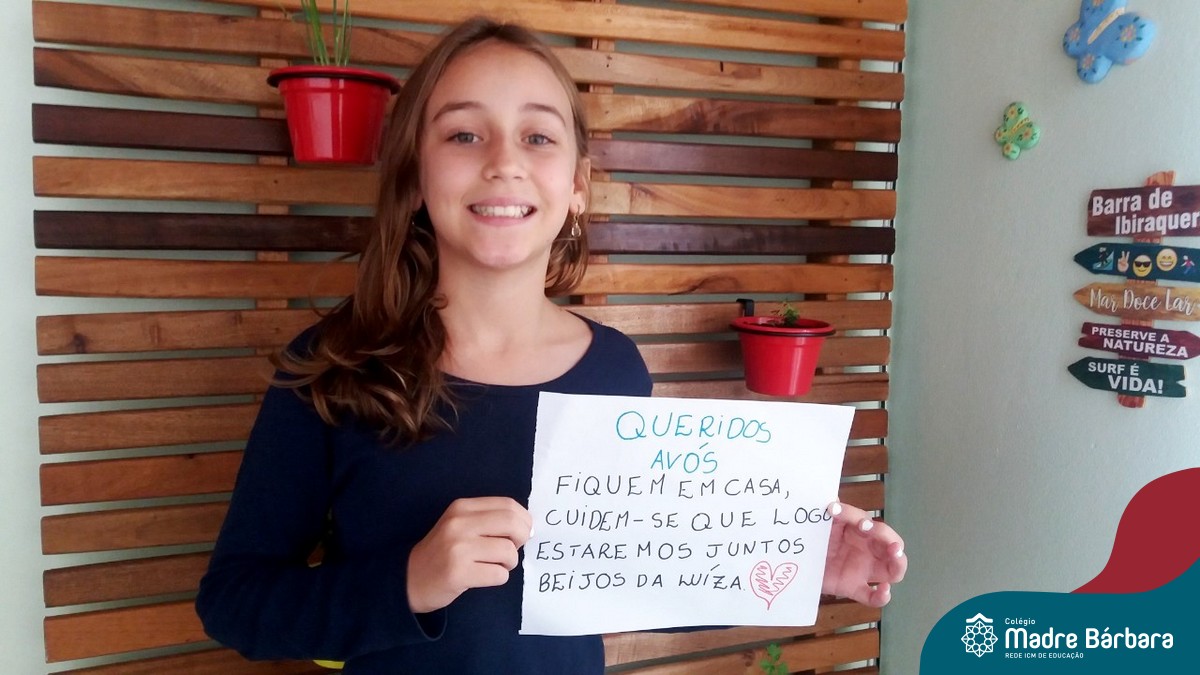 QUERIDOS
AVÓS
FIQUEM EM CASA,
CUIDEM-SE QUE LOGO
ESTAREMOS JUNTOS
BEIJOS DA LUÍZA.
Barra de
Ibiraquer
Mar Doce Lar
PRESERVE A
NATUREZA
SURF É
VIDA!
Colégio
Madre Bárbara
REDE ICM DE EDUCAÇÃO